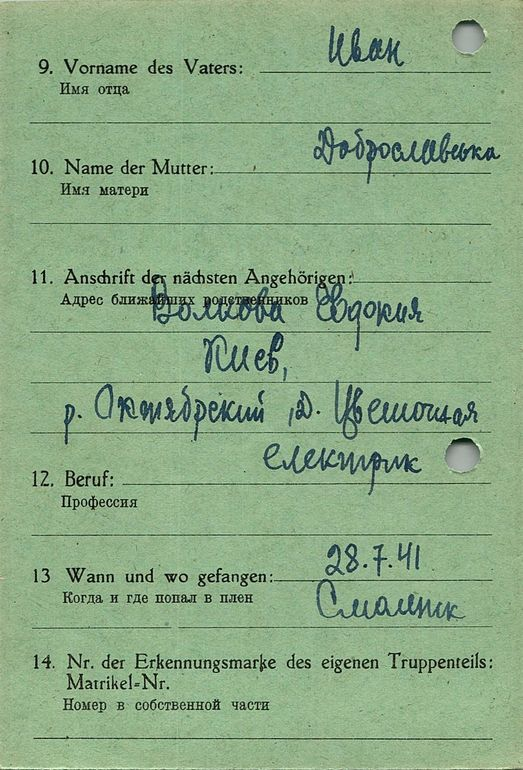 Иван
9. Vorname des Vaters:
Имя отца
Доброславська
10. Name der Mutter:
Имя матери
11. Anschrift der nächsten Angehörigen:
Адрес ближайших родственников
Волкова Евдокия
Киев,
р. Октябрский, д. Цветочная
електрик
12. Beruf:
Профессия
28.7.41
13 Wann und wo gefangen:
Когда и где попал в плен
Смоленск
14. Nr. der Erkennungsmarke des eigenen Truppenteils:
Matrikel-Nr.
Номер в собственной части